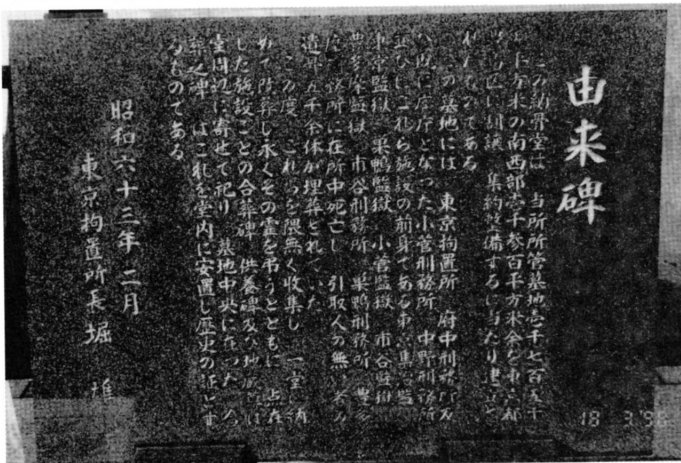 由来碑
この納骨堂は 当所所管墓地壱千七百五十
六平方米の南西部壱千参百平方米余を東京都
豊島区に割譲 集約整備するに当たり建立さ
れたものである
この墓地には 東京拘置所 府中刑務所及
び既に廃庁となった小菅刑務所 中野刑務所
並びにこれら施設の前身である東京集治監
東京監獄 巣鴨監獄 小菅監獄 市谷監獄
豊多摩監獄 市谷刑務所 巣鴨刑務所 豊多
摩刑務所に在所中死亡し 引取人の無い者の
遺骨五千余体が埋葬されていた
この度 これらを隈無く収集し 一堂に納
めて改葬し永くその霊を弔うとともに 点在
した施設ごとの合葬碑 供養碑及び地蔵尊は
堂周辺に寄せて祀り 墓地中央に在った
葬之碑 はこれを堂内に安置し歴史の証とす
るものである
昭和六十三年二月
東京拘置所長 堀 雄
18 3.'98